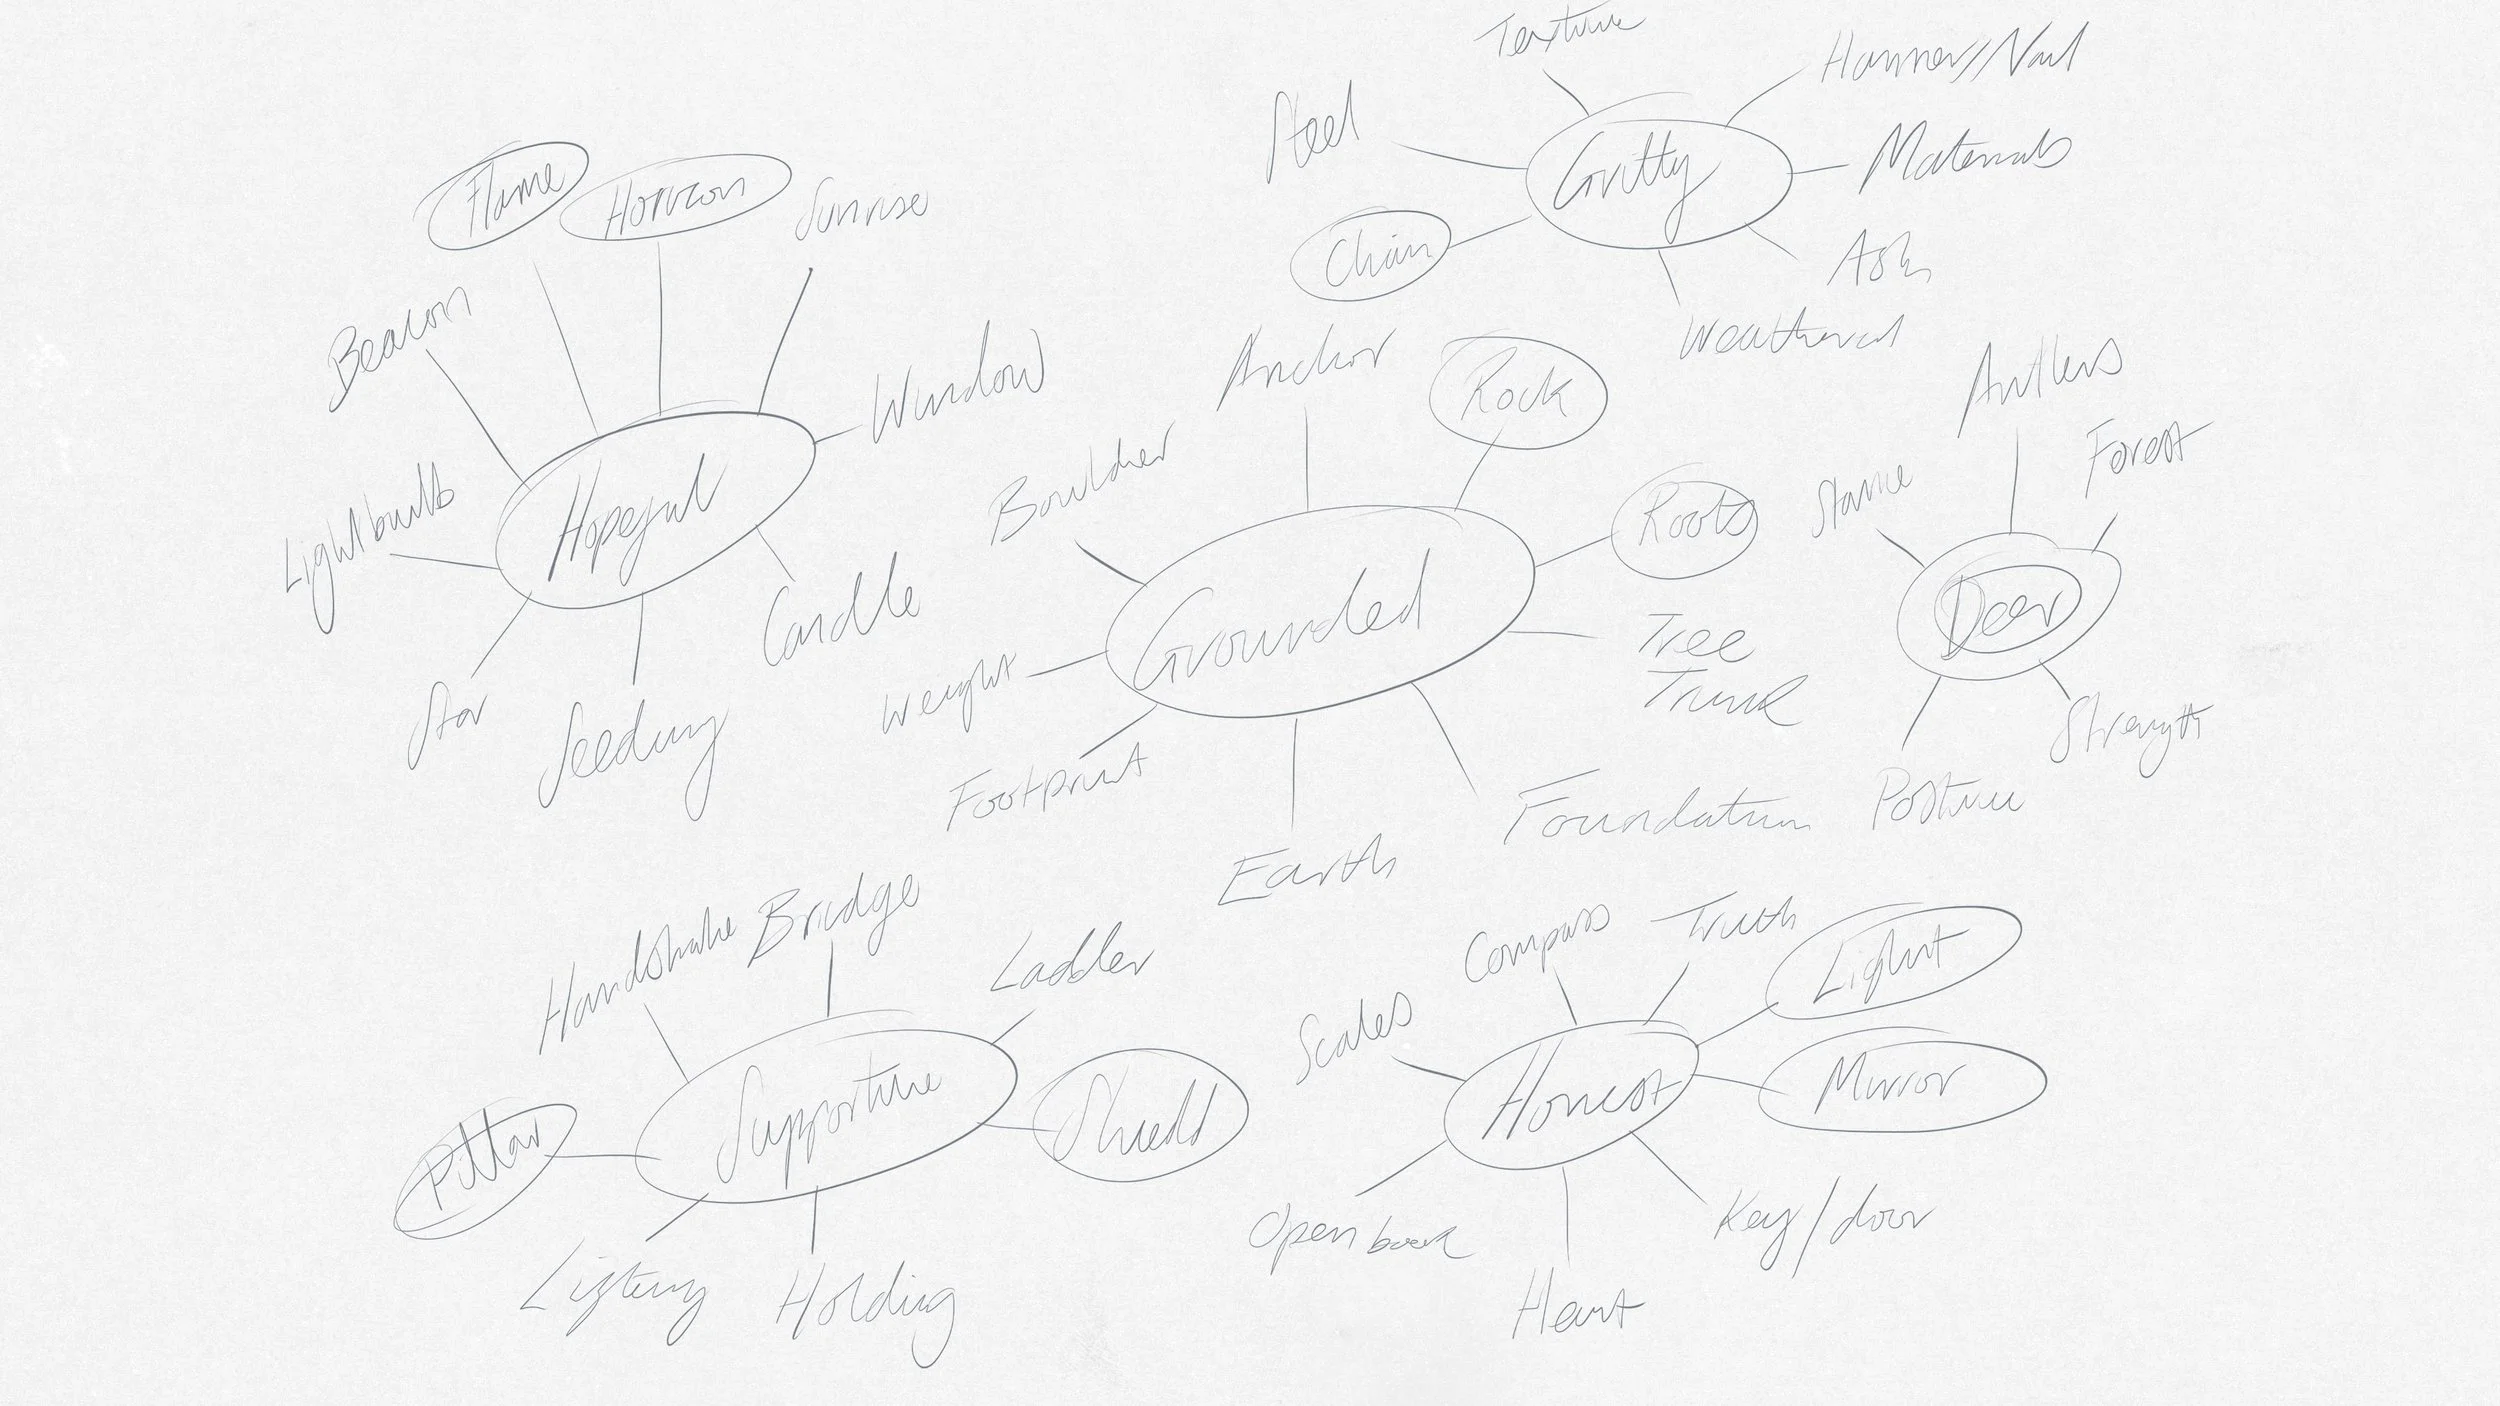 Texture
Hammer/Nail
Steel
Gritty
Materials
Chain
Ash
Weathered
Flame
Horizon
Sunrise
Beacon
Window
Lightbulb
Hopeful
Candle
Star
Seedling
Anchor
Rock
Boulder
Roots
Grounded
Tree
Trunk
Weight
Footprint
Earth
Foundation
Antlers
Forest
Stance
Deer
Strength
Posture
Handshake
Bridge
Ladder
Supportive
Shield
Pillar
Lifting
Holding
Compass
Truth
Light
Scales
Honest
Mirror
Open book
Key/door
Heart